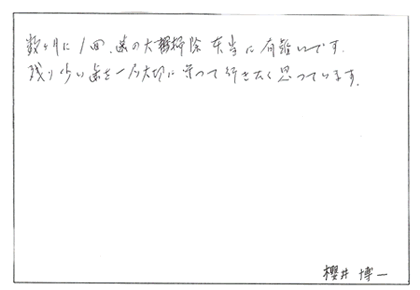 数ヶ月に1回、歯の大掃除 本当に有難いです。
残り少い歯を一層大切に守って行きたく思っています。
櫻井 博一